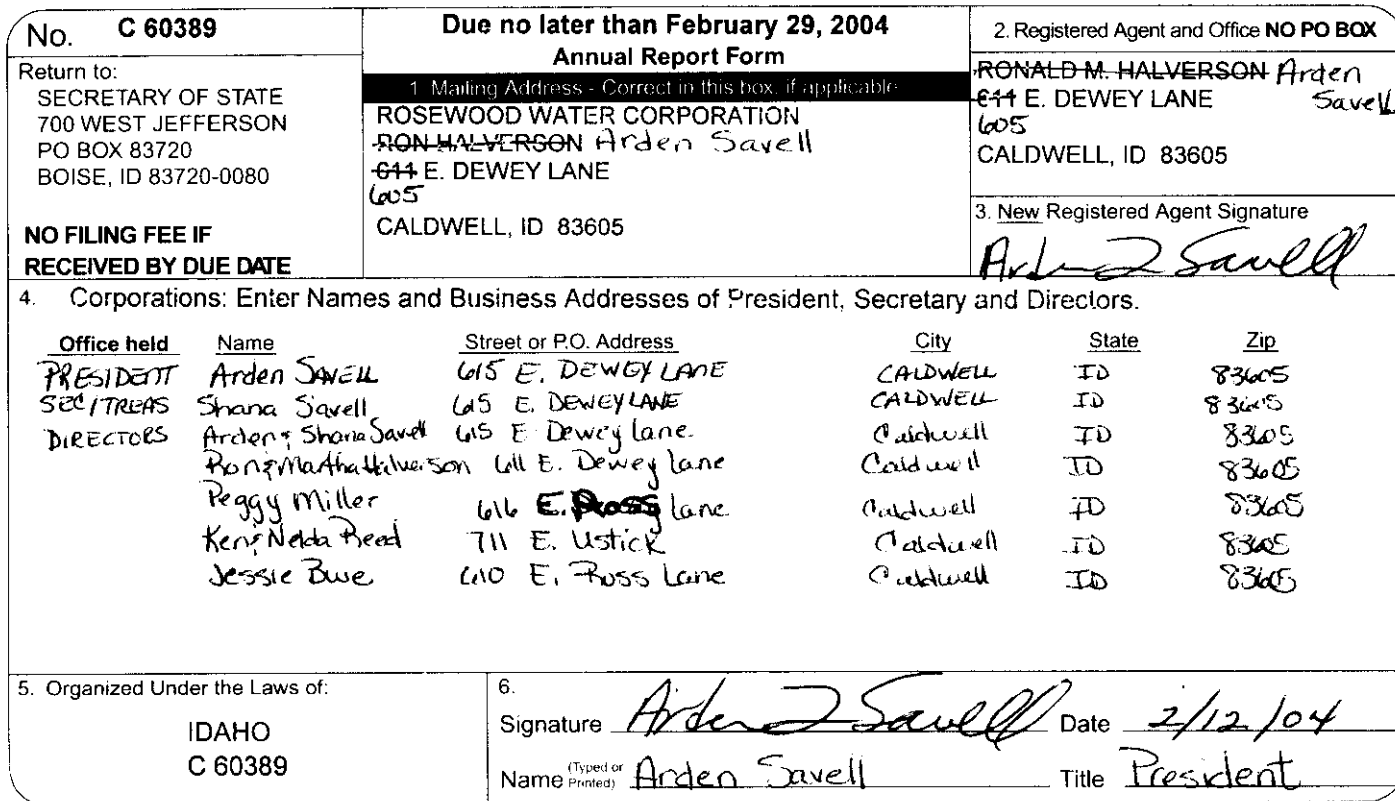 No. C 60389
Return to:
SECRETARY OF STATE
700 WEST JEFFERSON
PO BOX 83720
BOISE, ID 83720-0080
NO FILING FEE IF
RECEIVED BY DUE DATE
Due no later than February 29, 2004
Annual Report Form
1 Mailing Address - Correct in this box, if applicable
ROSEWOOD WATER CORPORATION
RON HALVERSON Arden Savell
611 E. DEWEY LANE
605
CALDWELL, ID 83605
2. Registered Agent and Office NO PO BOX
RONALD M. HALVERSON Arden
611 E. DEWEY LANE Savell
605
CALDWELL, ID 83605
3. New Registered Agent Signature
Arden Savell
4. Corporations: Enter Names and Business Addresses of President, Secretary and Directors.
Office held Name Street or P.O. Address City State Zip
PRESIDENT Arden SAVELL 615 E. DEWEY LANE CALDWELL ID 83605
SEC/TREAS Shana Savell 615 E. DEWEY LANE CALDWELL ID 83605
DIRECTORS Arden & Shana Savell 615 E Dewey lane. Caldwell ID 83605
Ron & Martha Halverson 611 E. Dewey lane Caldwell ID 83605
Peggy Miller 616 E. Ross lane Caldwell ID 83605
Ken & Nelda Reed 711 E. Ustick Caldwell ID 83605
Jessie 610 E. Ross Lane Caldwell ID 83605
5. Organized Under the Laws of:
IDAHO
C 60389
6.
Signature Arden Savell Date 2/12/04
Name (Typed or Printed) Arden Savell Title President